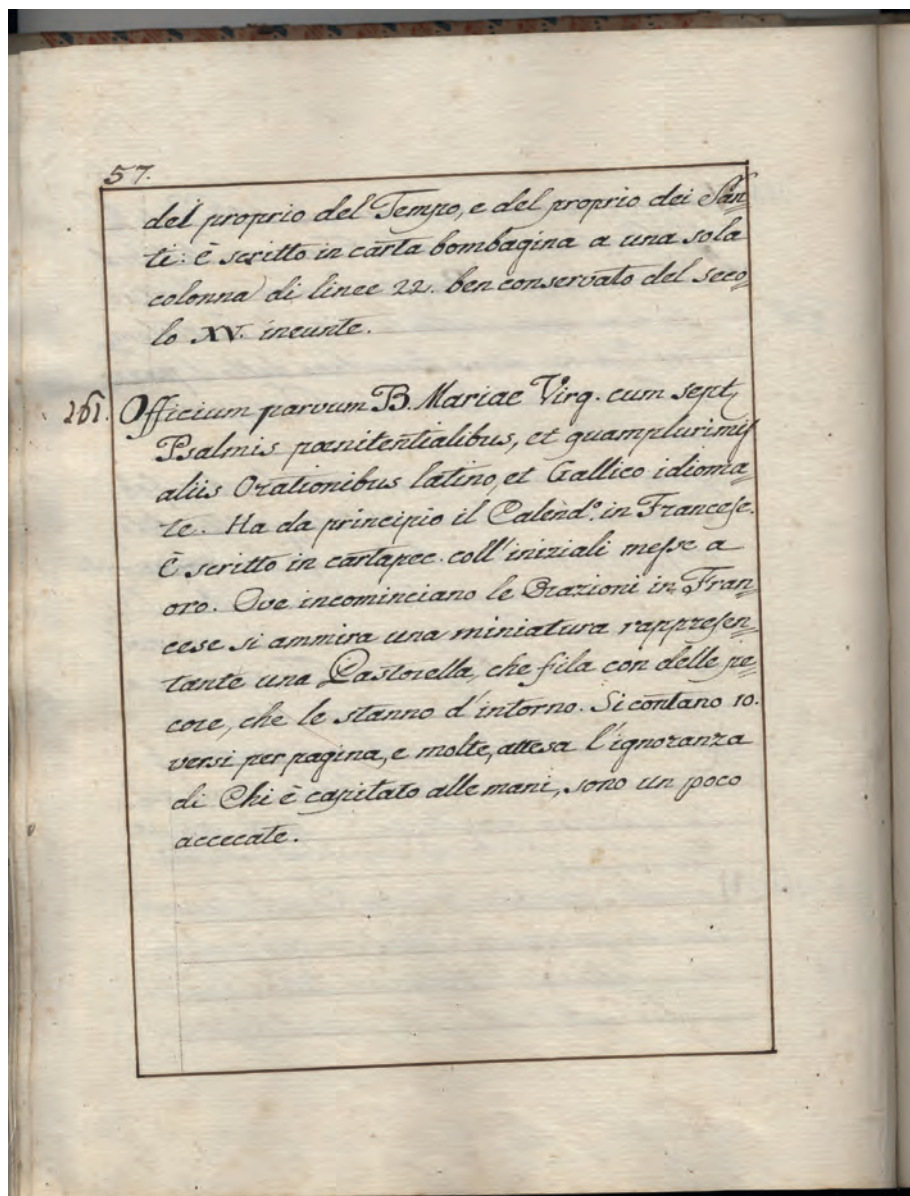 57.
del proprio del Tempo, e del proprio dei San=
ti: è scritto in carta bombagina a una sola
colonna di linee 22. ben conservato del seco=
lo XV. ineunte.
161. Officium parvum B. Mariae Virg. cum sept,
Psalmis pœnitentialibus, et quamplurimis
aliis Orationibus latino, et Gallico idioma=
te. Ha da principio il Calend.º in Francese.
È scritto in cartapec. coll'iniziali messe a
oro. Ove incominciano le Orazioni in Fran=
cese si ammira una miniatura rappresen=
tante una Pastorella, che fila con delle pe=
core, che le stanno d'intorno. Si contano 10.
versi per pagina, e molte, attesa l'ignoranza
di Chi è capitato alle mani, sono un poco
accecate.